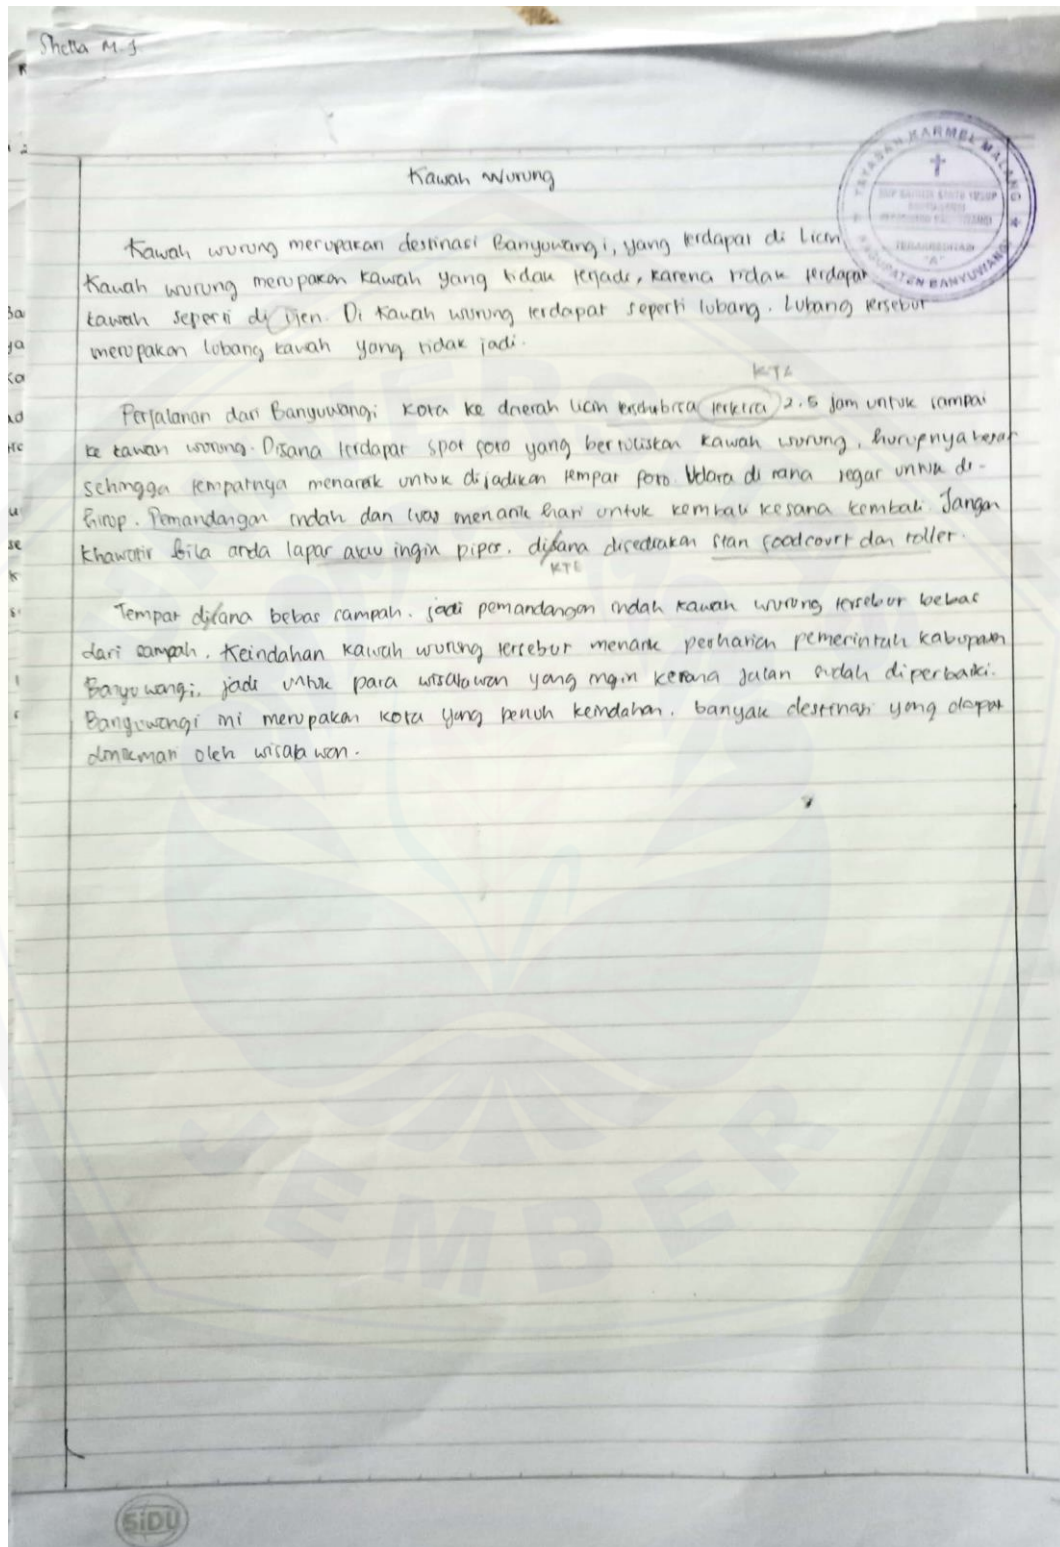 Shella M. J.
YAYASAN KARMEL MALANG
KABUPATEN BANYUWANGI
TERAKREDITASI
"A"
Kawah Wurung
Kawah wurung merupakan destinasi Banyuwangi, yang terdapat di Licin
Kawah wurung merupakan kawah yang tidak terjadi, karena tidak terdapat
kawah seperti di ijen. Di kawah wurung terdapat seperti lubang. Lubang tersebut
merupakan lobang kawah yang tidak jadi.
KTL
Perjalanan dari Banyuwangi kota ke daerah licin terkira 2.5 jam untuk sampai
ke kawah wurung. Disana terdapat spot foto yang bertuliskan kawah wurung, hurupnya besar
sehingga tempatnya menarik untuk dijadikan tempat foto. Udara di sana segar untuk di-
hirup. Pemandangan indah dan luas menarik hati untuk kembali kesana kembali. Jangan
khawatir bila anda lapar atau ingin pipis. disana disediakan stan foodcourt dan toilet.
KTE
Tempat disana bebas sampah. jadi pemandangan indah kawah wurung tersebut bebas
dari sampah. Keindahan kawah wurung tersebut menarik perhatian pemerintah kabupaten
Banyuwangi, jadi untuk para wisatawan yang ingin kesana jalan sudah diperbaiki.
Banyuwangi ini merupakan kota yang penuh keindahan. banyak destinasi yang dapat
dinikmati oleh wisatawan.
JEMBER
SiDU